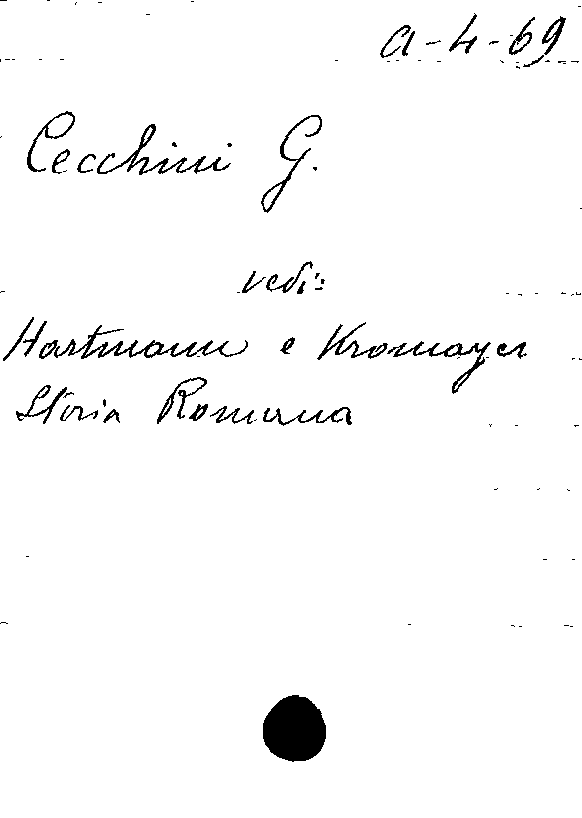 a-4-69
Cecchini G.
vedi:
Hartmann e Kromayer
Storia Romana